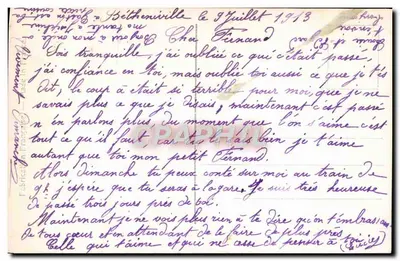 Bétheniville le 3 Juillet 1913
Cher Fernand
Sois tranquille, j'ai oublié ce qui c'était passé,
j'ai confiance en toi, mais oublie toi aussi ce que je t'ai
dit, le coup était si terrible pour moi, que je ne
savais plus ce que je disais, maintenant c'est passé
n'en parlons plus, du moment que l'on s'aime c'est
tout ce qu'il faut car tu sais bien je t'aime
autant que toi mon petit Fernand.
Alors dimanche tu peux compté sur moi au train de
9h j'espère que tu seras à la gare. Je suis très heureuse
de passé trois jours près de toi.
Maintenant je ne vois plus rien à te dire qu'on t'embrassant
de tous cœur et en attendant de le faire de plus près.
Celle qui t'aime et qui ne cesse de penser à toi
Vivement Dimanche